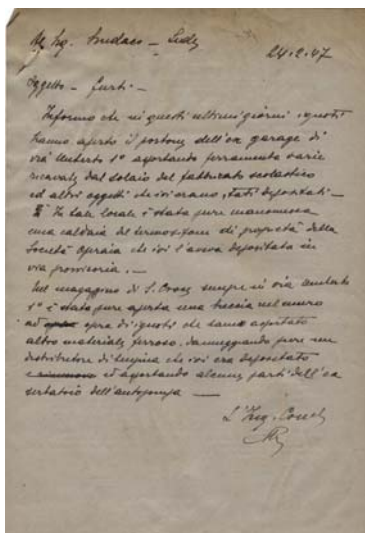 Al Sig. Sindaco - Sede
24.2.47
Oggetto - Furti -
Informo che in questi ultimi giorni ignoti
hanno aperto il portone dell'ex garage di
via Umberto 1° asportando ferramenta varie
ricavate dal solaio del fabbricato scolastico
ed altri oggetti che ivi erano stati depositati -
In tale locale è stata pure manomessa
una caldaia del termosifone di proprietà della
Società Operaia che ivi l'aveva depositata in
via provvisoria. -
Nel magazzino di S. Croce sempre in via Umberto
1° è stata pure aperta una breccia nel muro
ad opera di ignoti che hanno asportato
altro materiale ferroso. danneggiando pure un
distributore di benzina che ivi era depositato
ed asportando alcune parti dell'ex
serbatoio dell'autopompa -
L'Ing. Com.